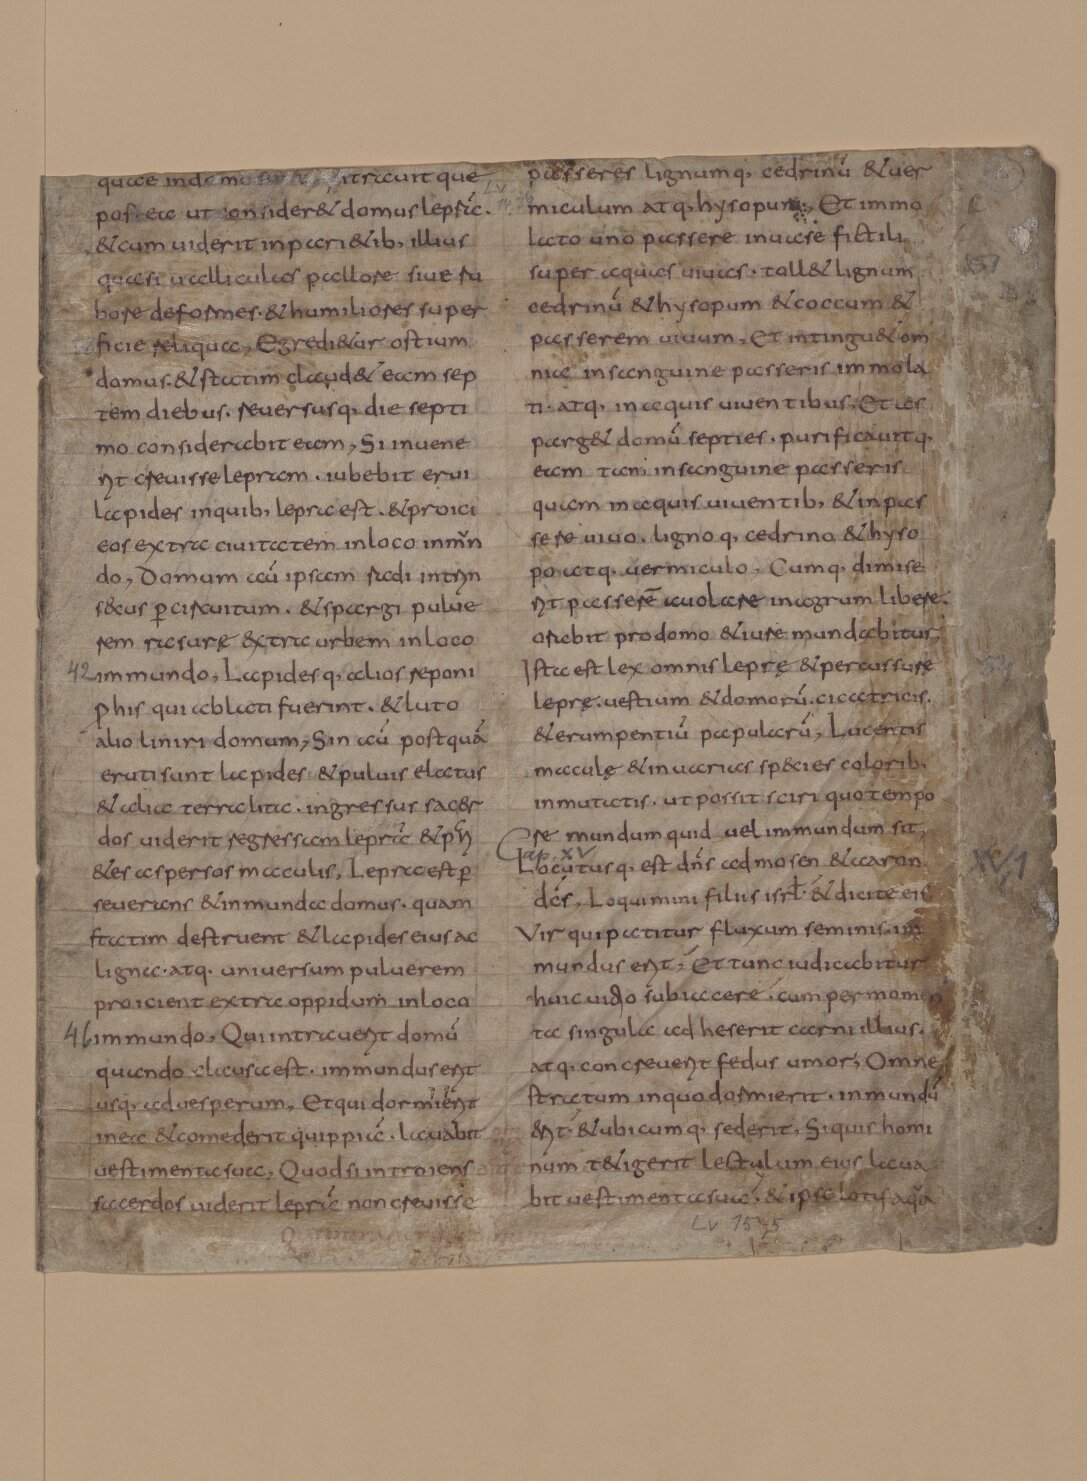 quae in domo sunt, intravit que
postea ut consider& domus leprā.
& cum viderit in pari&ib; illius
quasi valliculas pallore sive ru
bore deformes. & humiliores super
ficie reliqua, Egredi&ur ostium
domus. & statim claud& eam sep
tem diebus. reversusq; die septi
mo considerabit eam, Si invene
rit crevisse lepram. iubebit erui
lapides in quib; lepra est. & proici
eos extra civitatem in loco inmūn
do, Domum aū ipsam radi intrin
secus ꝑ circuitum. & spargi pulve
rem rasurę extra urbem in loco
42 immundo, Lapidesq; alios reponi
ꝓ his qui ablati fuerint. & luto
alio liniri domum, Sin aū postquā
eruti sunt lapides & pulvis elatus
& alia terra lita. ingressus sacer
dos viderit regressam leprā & pari
&es aspersos maculis, Lepra est ꝑ
severans & inmunda domus. quam
statim destruent & lapides eius ac
ligna. atq; universum pulverem
proicient extra oppidum in loco
46 immundo, Qui intraverit domū
quando clausa est. immundus erit
usq; ad vesperum, Et qui dormierit
in ea & comederit quippiā. lavabit
vestimenta sua, Quod si introiens
sacerdos viderit leprā non crevisse
passeres lignumq; cedrinū & ver
miculum atq; hysopum, Et immo
lato uno passere in vase fictili
super aquas vivas. toll& lignum
cedrinū & hysopum & coccum &
passerem vivum, Et intingu& om
nia in sanguine passeris immola
ti. atq; in aquis viventibus, Et as
parg& domū septies. purificavitq;
eam tam in sanguine passeris
quam in aquis viventib; & in pas
sere vivo. lignoq; cedrino & hyso
po atq; vermiculo, Cumq; dimise
rit passerē avolare in agrum libere.
orabit pro domo & iure mundabitur,
Ista est lex omnis leprę & percussurę
leprę. vestium & domorū. cicatricis.
& erumpentiū papularū, Lucentis
maculę & in varias species colorib;
inmutatis. ut possit sciri quo tempo
re mundum quid vel immundum sit,
Cap. XV
XV,1
Locutusq; est dn̄s ad mosen & aaron
dc̄s, Loquimini filiis isrł. & dicite eis
Vir qui patitur fluxum seminis. in
mundus erit, Et tunc iudicabitur
huic vitio subiacere. cum per momen
ta singula adheserit carni illius.
atq; concreverit fedus umor, Omne
stratum in quo dormierit. inmundū
erit. & ubicumq; sederit, Si quis homi
num t&igerit lectulum eius lava
bit vestimenta sua. & ipse lotus aqua
Lv 15,5